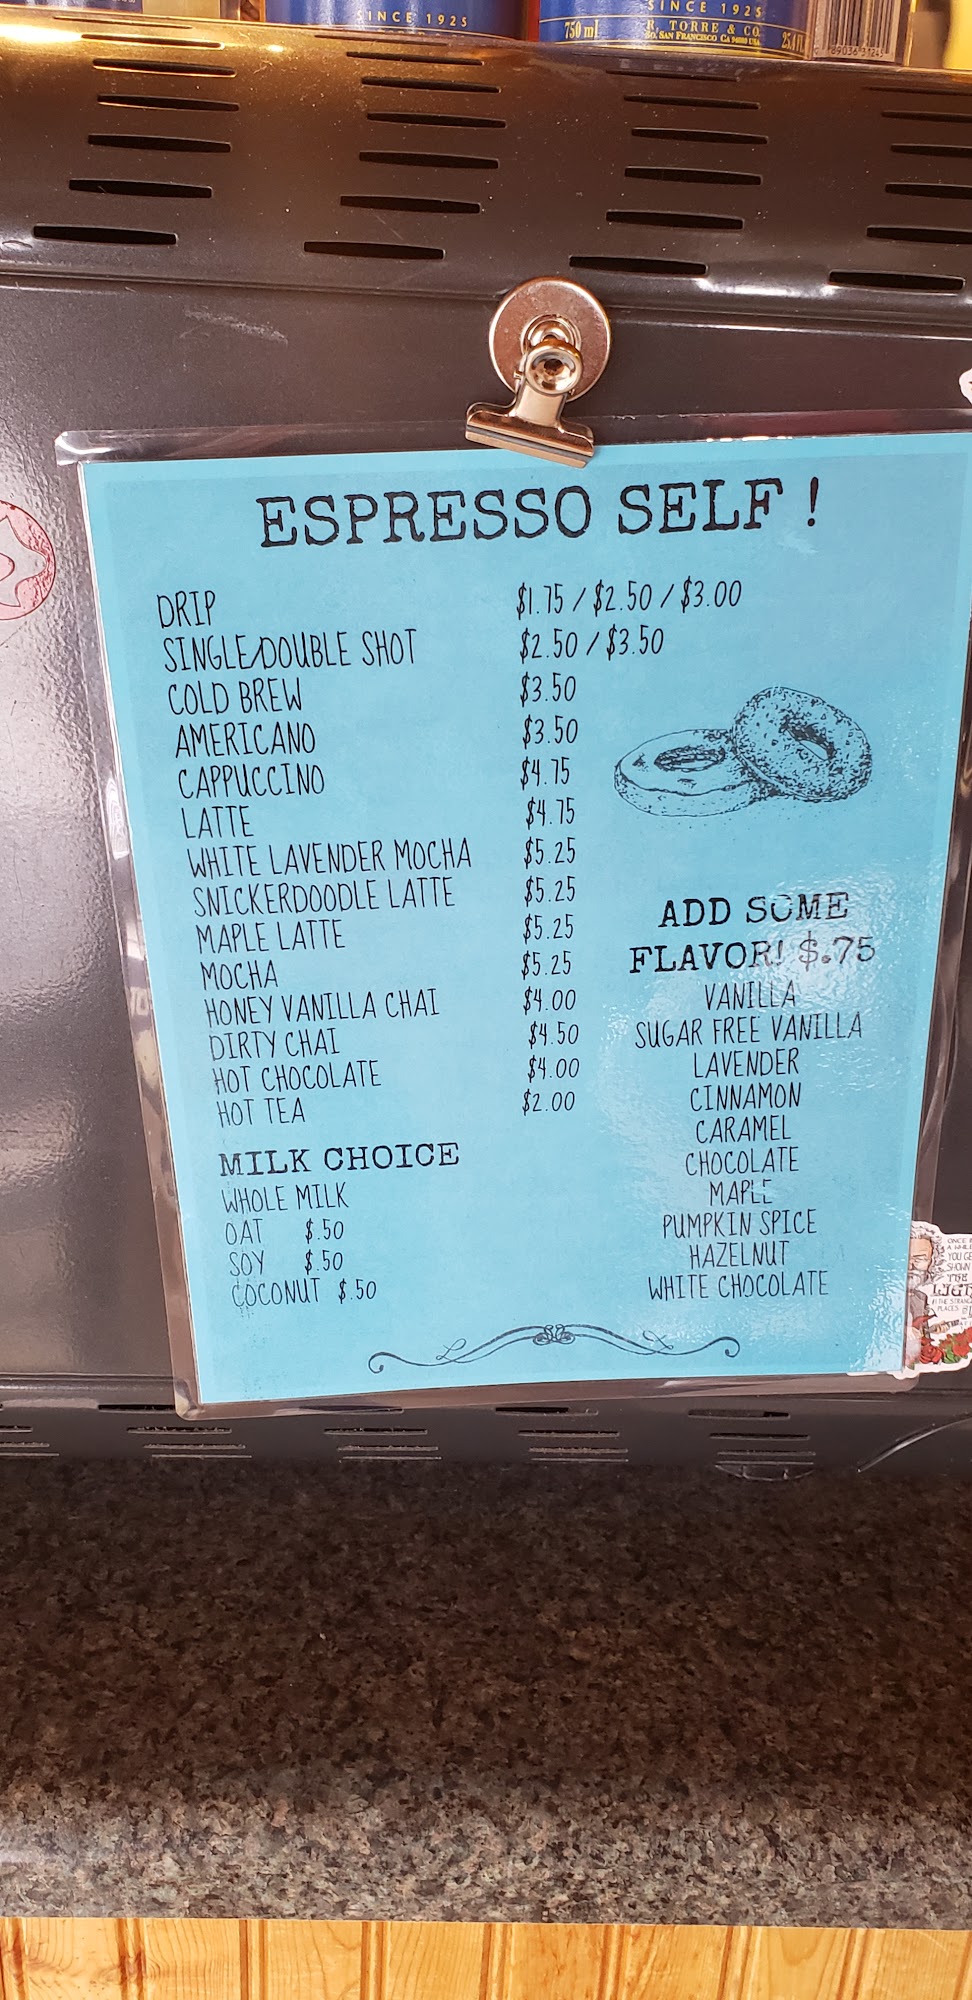 SINCE 1925
SINCE 1925
750 ml
R. TORRE & CO.
SO. SAN FRANCISCO CA 94080 USA
ESPRESSO SELF !
DRIP $1.75 / $2.50 / $3.00
SINGLE/DOUBLE SHOT $2.50 / $3.50
COLD BREW $3.50
AMERICANO $3.50
CAPPUCCINO $4.75
LATTE $4.75
WHITE LAVENDER MOCHA $5.25
SNICKERDOODLE LATTE $5.25
MAPLE LATTE $5.25
MOCHA $5.25
HONEY VANILLA CHAI $4.00
DIRTY CHAI $4.50
HOT CHOCOLATE $4.00
HOT TEA $2.00
MILK CHOICE
WHOLE MILK
OAT $.50
SOY $.50
COCONUT $.50
ADD SOME
FLAVOR! $.75
VANILLA
SUGAR FREE VANILLA
LAVENDER
CINNAMON
CARAMEL
CHOCOLATE
MAPLE
PUMPKIN SPICE
HAZELNUT
WHITE CHOCOLATE
ONCE
YOU GE
SHOWN
THE
LIGT
PLACES